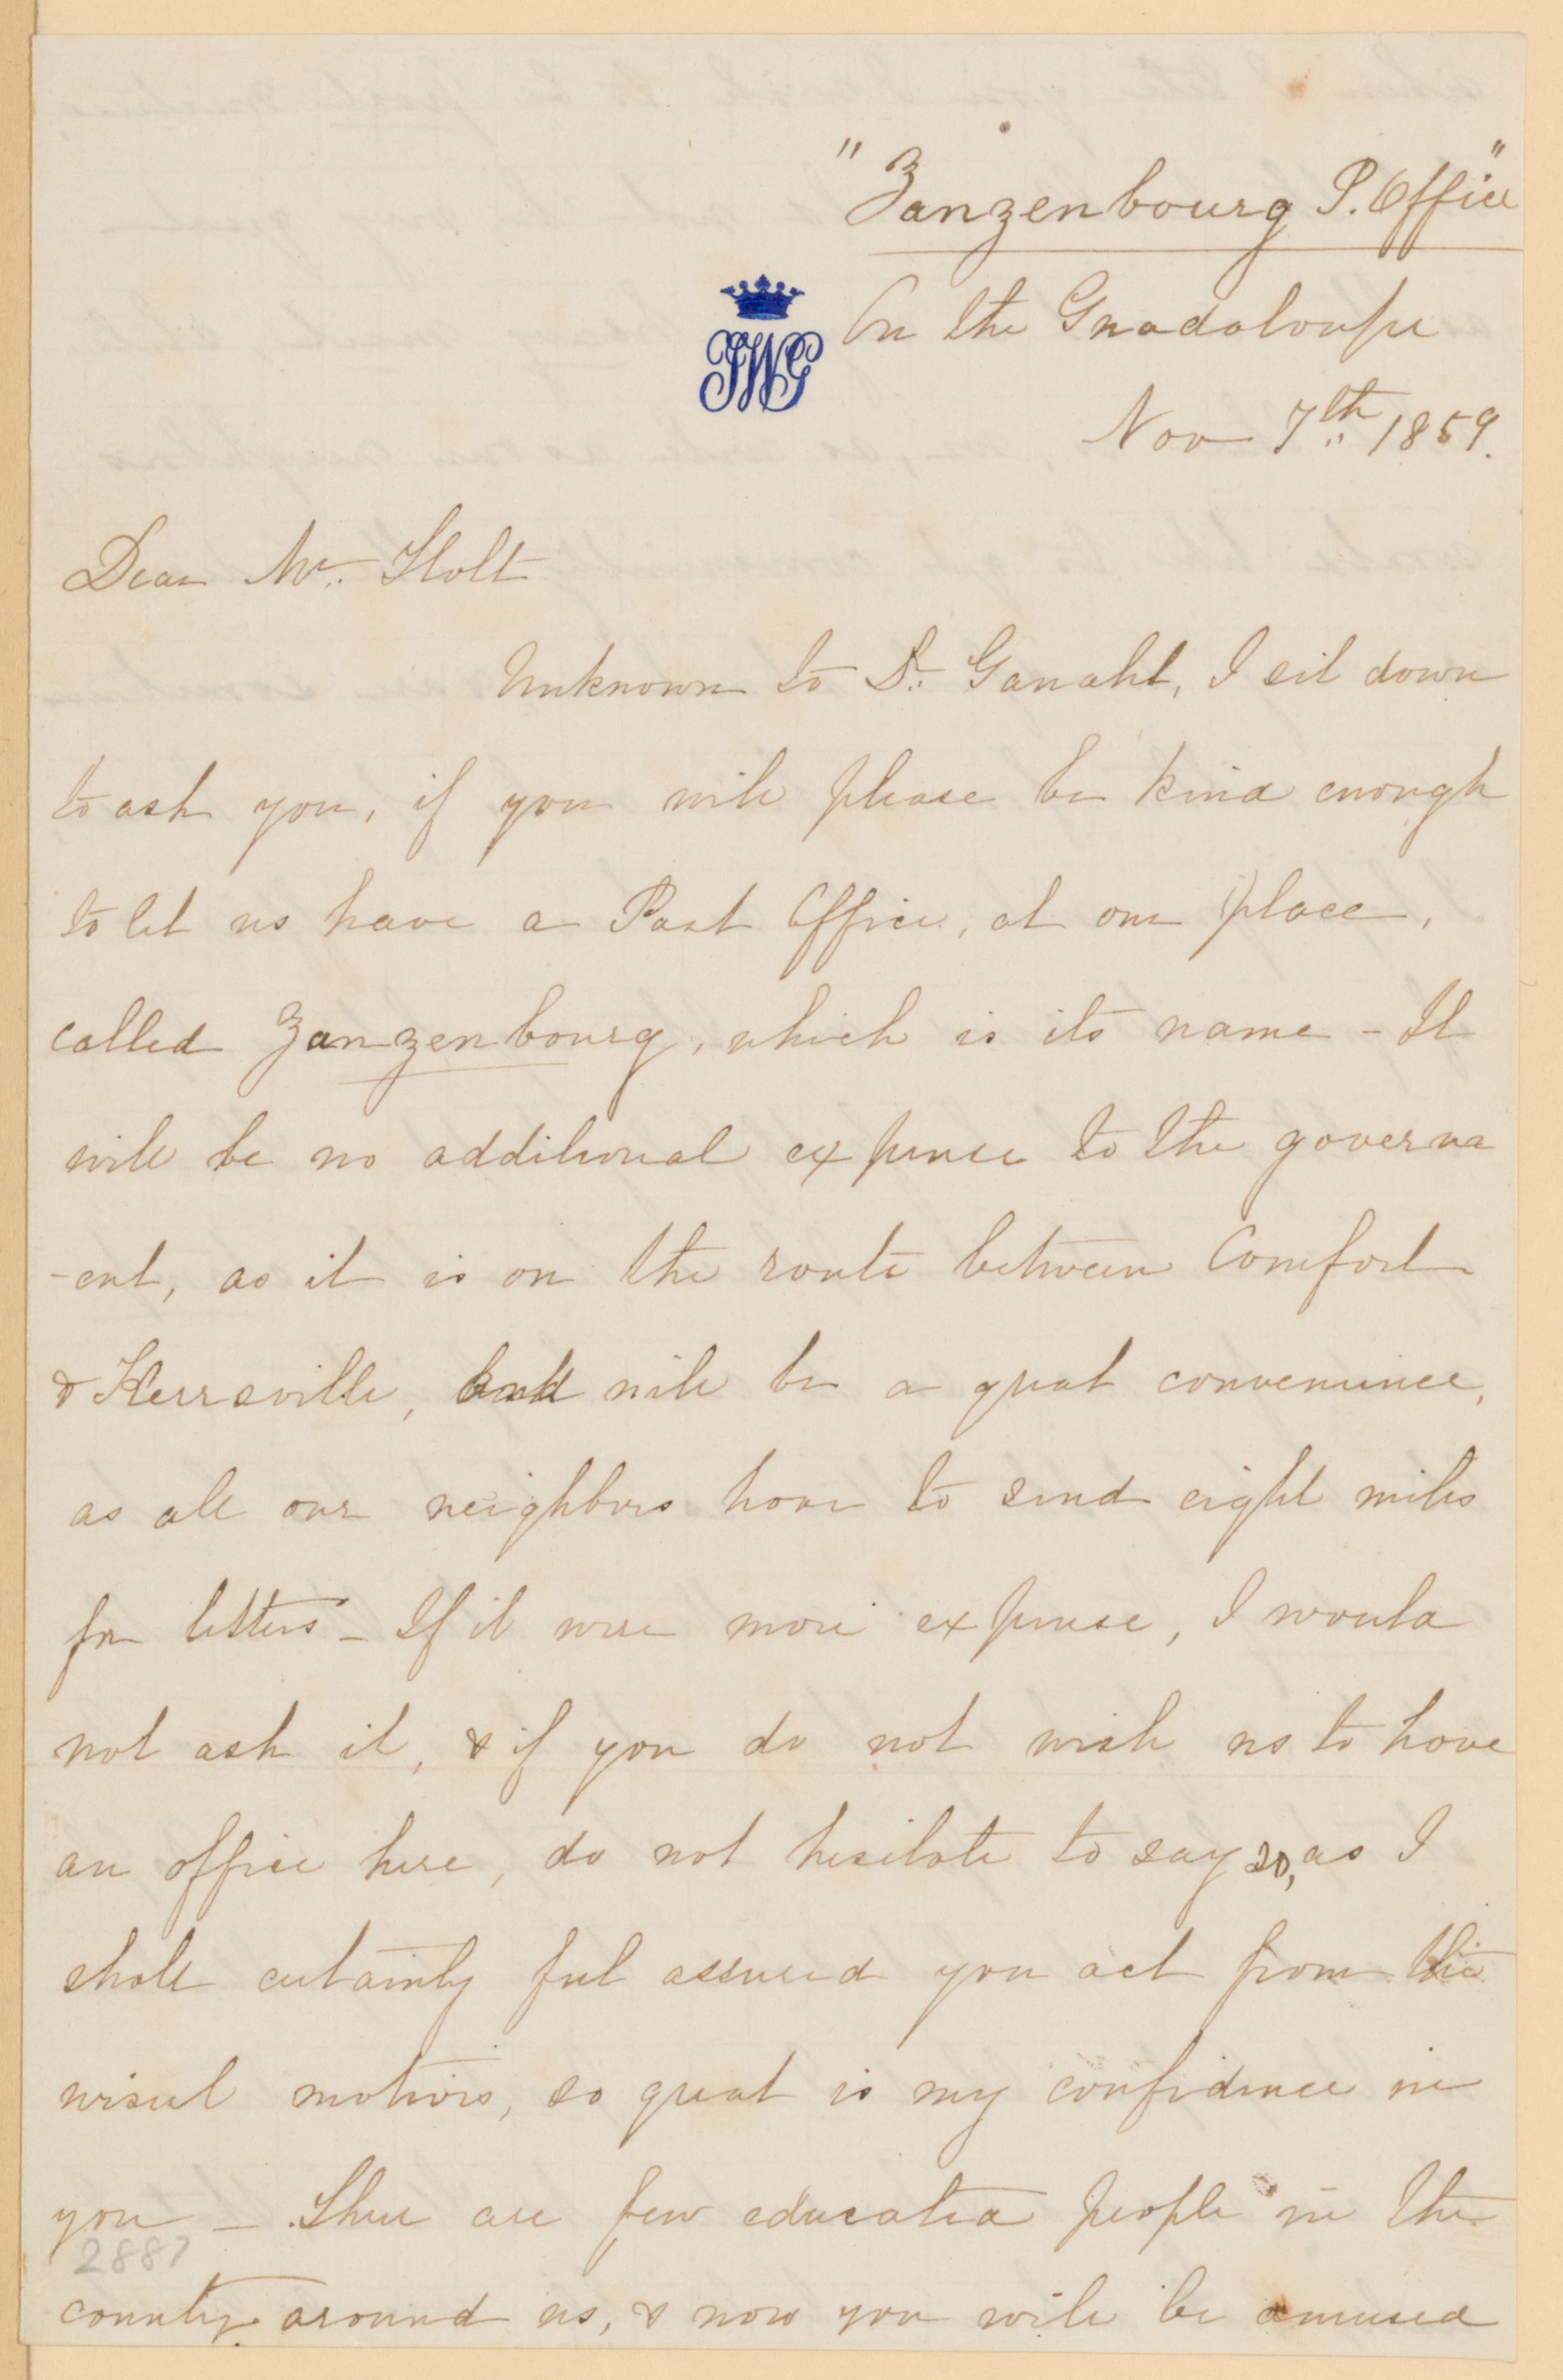 "Zanzenbourg P. Office"
On the Guadaloupe
JWG
Nov 7th 1859.
Dear Mr. Holt
Unknown to Dr. Ganahl, I sit down
to ask you, if you will please be kind enough
to let us have a Post Office, at our place,
called Zanzenbourg, which is its name - It
will be no additional expence to the governm
-ent, as it is on the route between Comfort
& Kerrsville, and will be a great convenience,
as all our neighbors have to send eight miles
for letters - If it were more expense, I would
not ask it, & if you do not wish us to have
an office here, do not hesitate to say so, as I
shall certainly feel assured you act from the
wisest motives, so great is my confidence in
you - There are few educated people in the
county around us, & now you will be amused
2887